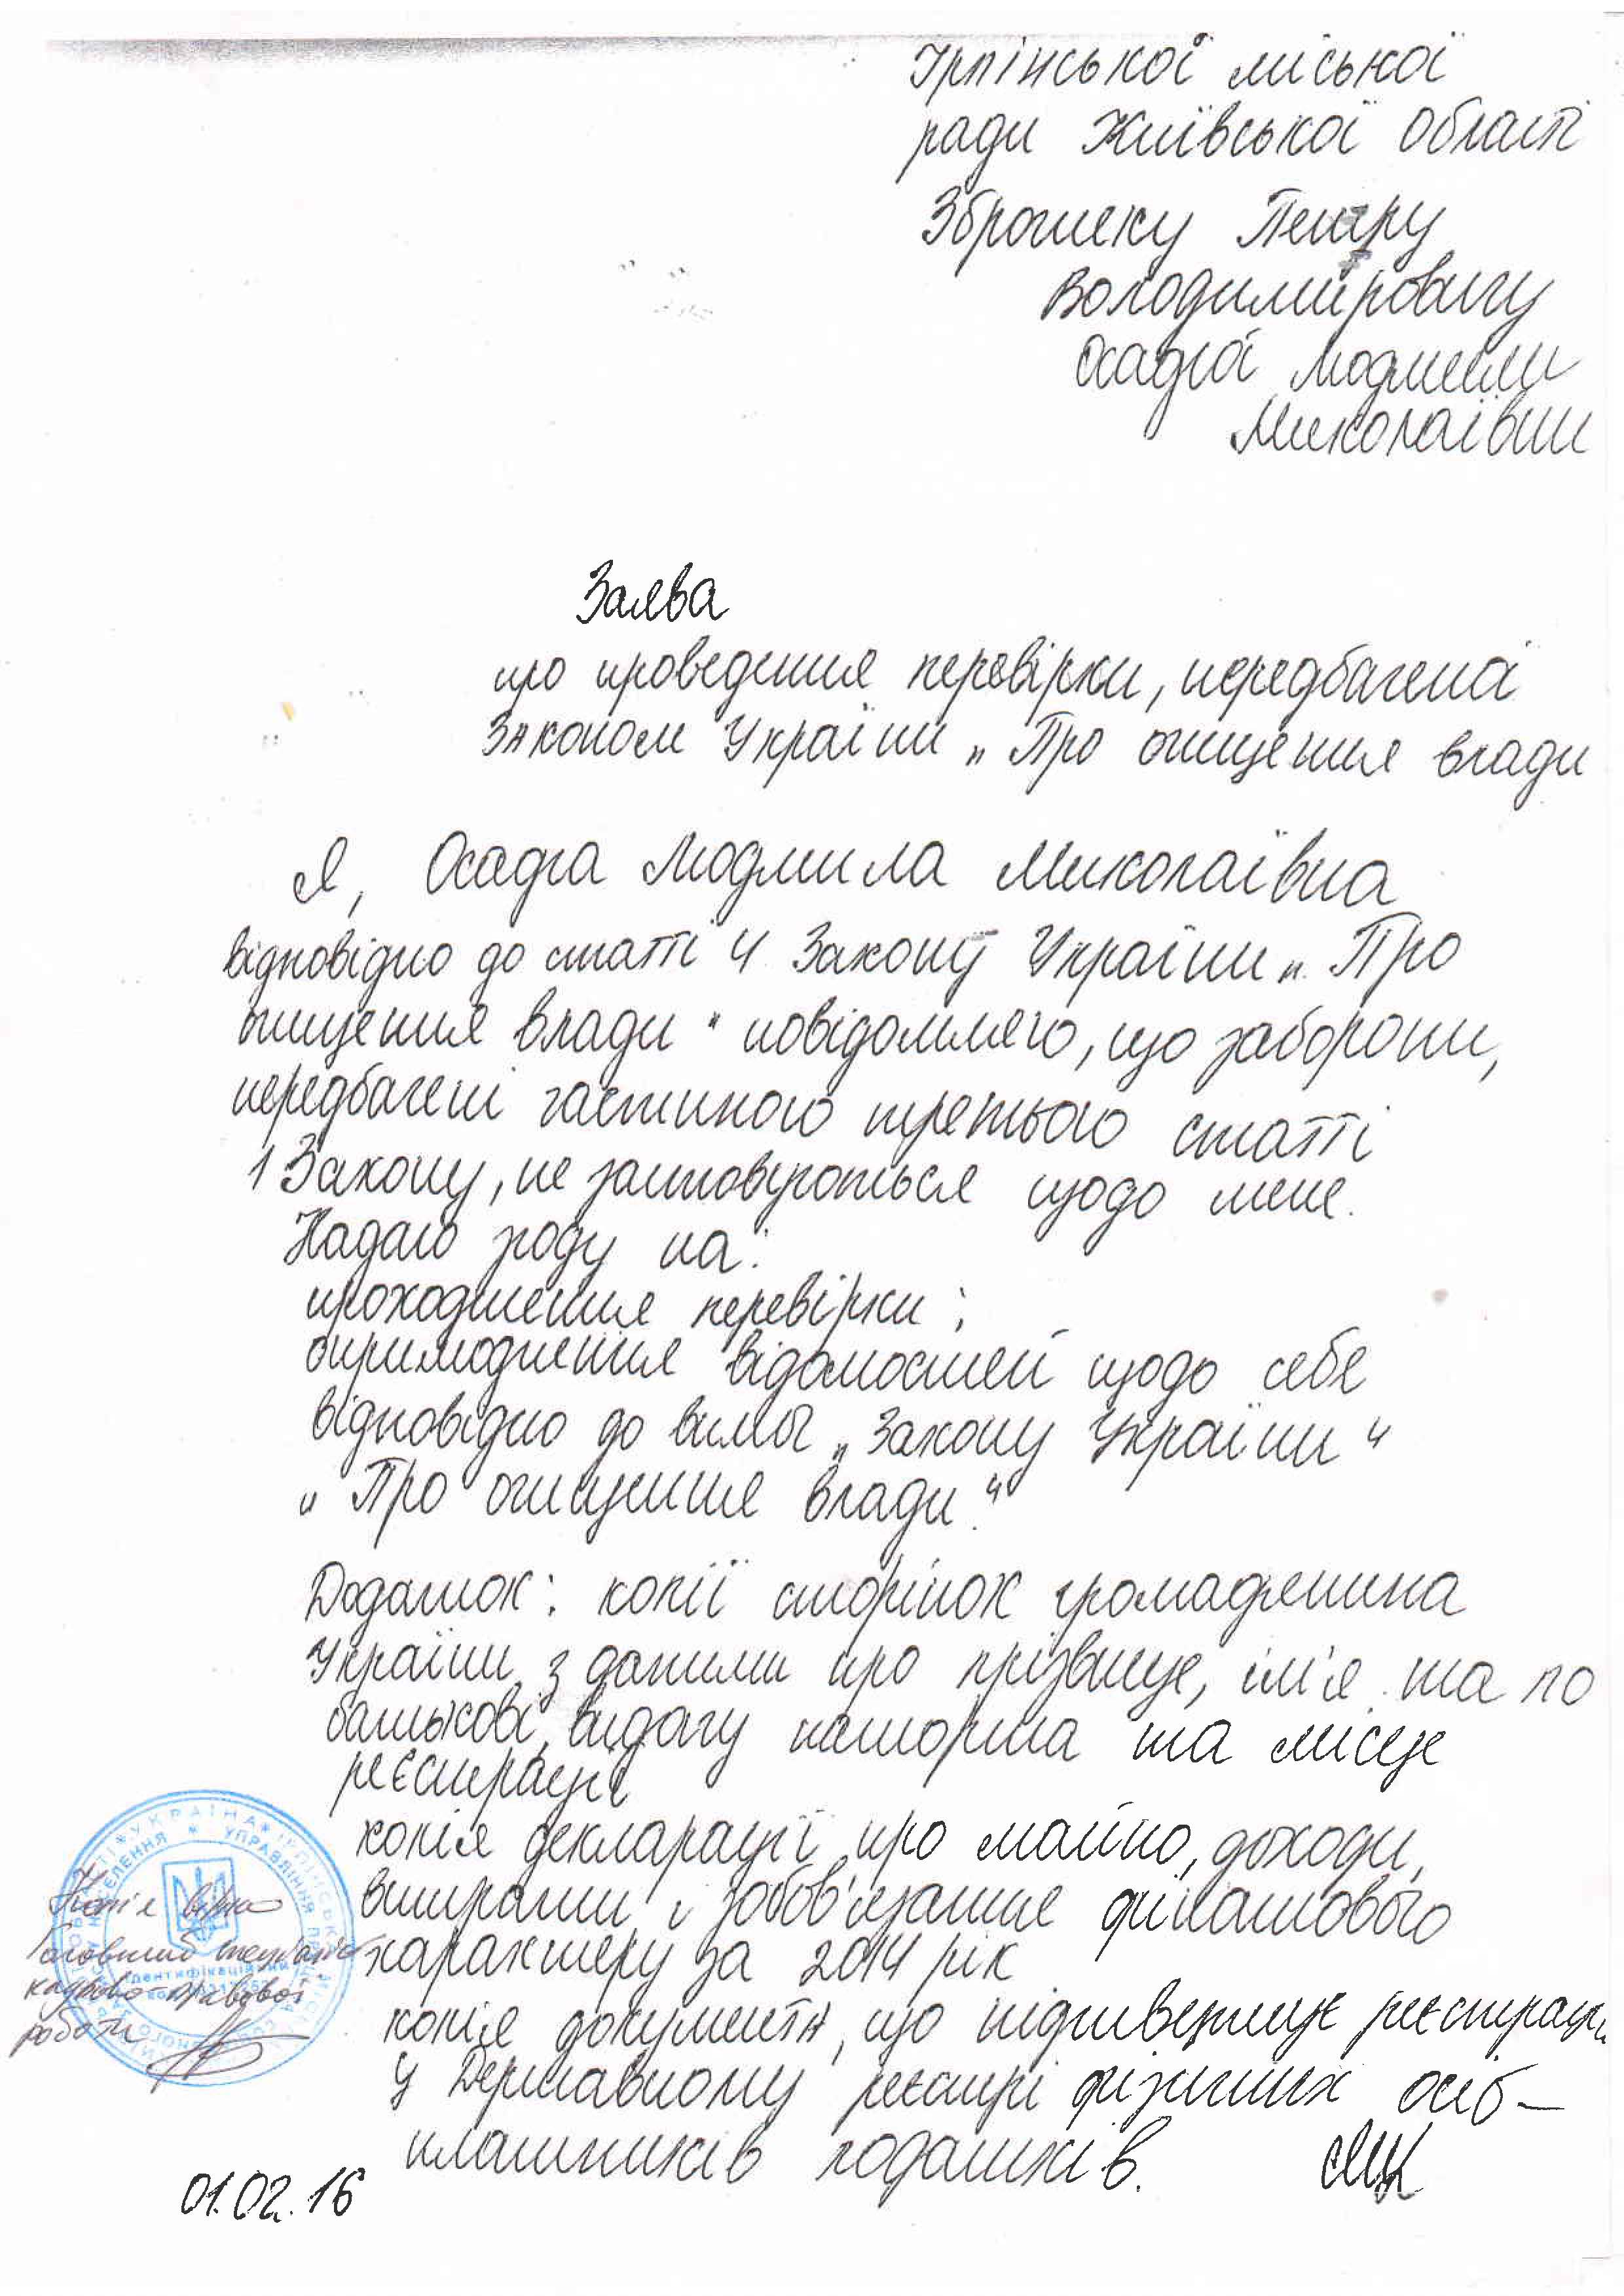 Ірпінської міської
ради Київської області
Зброжеку Петру
Володимировичу
Осадчої Людмили
Миколаївни
Заява
про проведення перевірки, передбаченої
Законом України „Про очищення влади
Я, Осадча Людмила Миколаївна
відповідно до статті 4 Закону України „Про
очищення влади" повідомляю, що заборони,
передбачені частиною третьою статті
1 Закону, не застовуються щодо мене.
Надаю згоду на:
проходження перевірки;
оприлюднення відомостей щодо себе
відповідно до вимог „Закону України"
„Про очищення влади."
Додаток: копії сторінок громадянина
України з даними про прізвище, ім'я та по
батькові, видачу паспорта та місце
реєстрації
копія декларації про майно, доходи,
витрати і зобов'язання фінансового
характеру за 2014 рік
копія документа, що підтверджує реєстрацію
у Державному реєстрі фізичних осіб –
платників податків.
Копія вірна
Головний спеціаліст
кадрово-правової
роботи
УКРАЇНА
УПРАВЛІННЯ
01.02.16